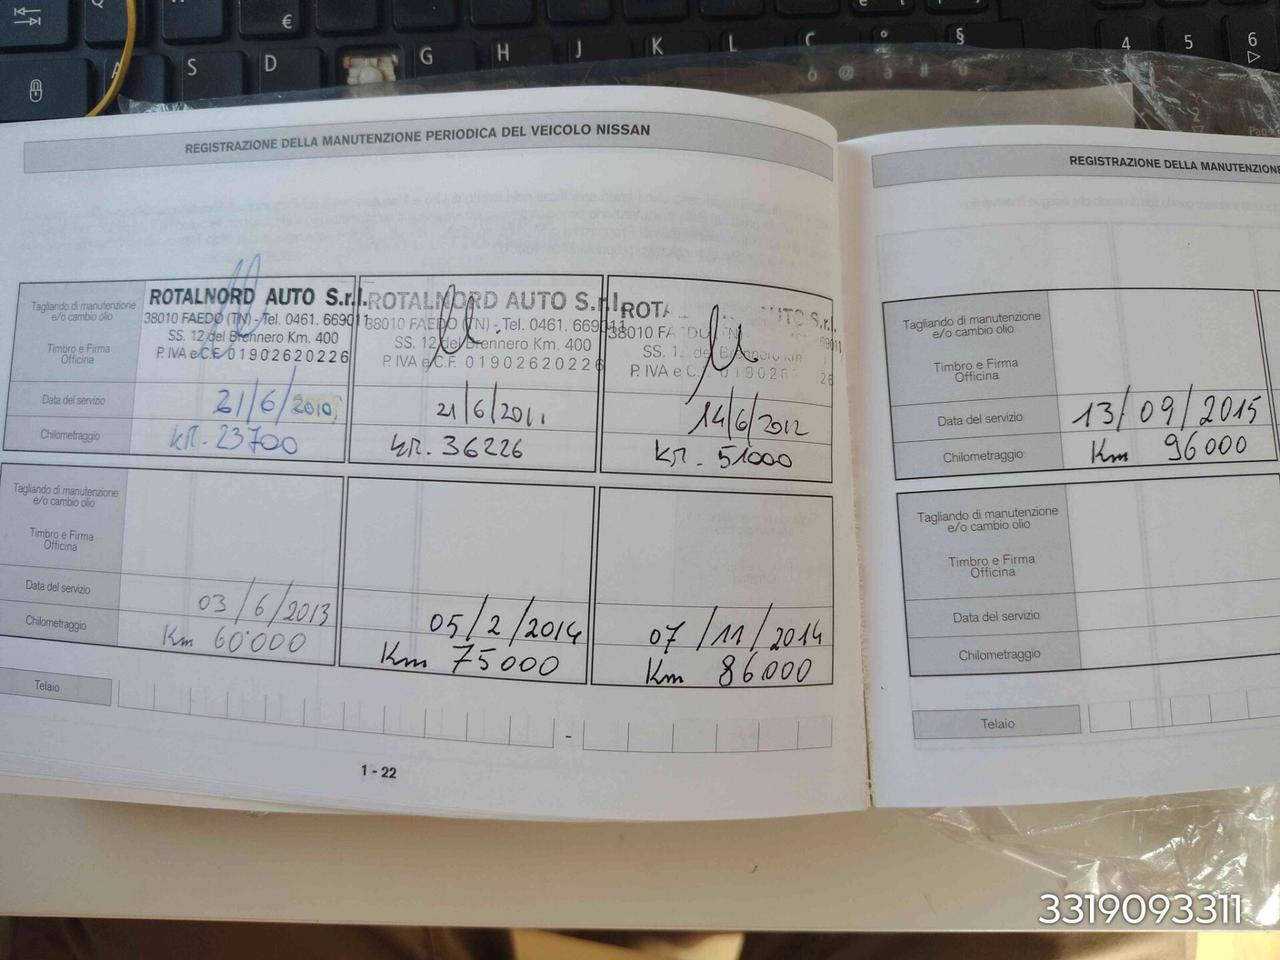 €
S D G H J K L ç ° §
4 5 6
ò @ à # ù
REGISTRAZIONE DELLA MANUTENZIONE PERIODICA DEL VEICOLO NISSAN
Tagliando di manutenzione
e/o cambio olio
Timbro e Firma
Officina
ROTALNORD AUTO S.r.l.
38010 FAEDO (TN) - Tel. 0461. 669011
SS. 12 del Brennero Km. 400
P. IVA e C.F. 01902620226
ROTALNORD AUTO S.r.l.
38010 FAEDO (TN) - Tel. 0461. 669011
SS. 12 del Brennero Km. 400
P. IVA e C.F. 01902620226
ROTA UTO S.r.l.
38010 FAEDO TN 69011
SS. 1 del Brennero Km
P. IVA e C. 019026 26
Data del servizio 21/6/2010 21/6/2011 14/6/2012
Chilometraggio KM. 23700 KM. 36226 KM. 51000
Tagliando di manutenzione
e/o cambio olio
Timbro e Firma
Officina
Data del servizio 03/6/2013 05/2/2014 07/11/2014
Chilometraggio Km 60'000 Km 75000 Km 86000
Telaio -
1 - 22
REGISTRAZIONE DELLA MANUTENZIONE
Tagliando di manutenzione
e/o cambio olio
Timbro e Firma
Officina
Data del servizio 13/09/2015
Chilometraggio Km 96000
Tagliando di manutenzione
e/o cambio olio
Timbro e Firma
Officina
Data del servizio
Chilometraggio
Telaio
3319093311